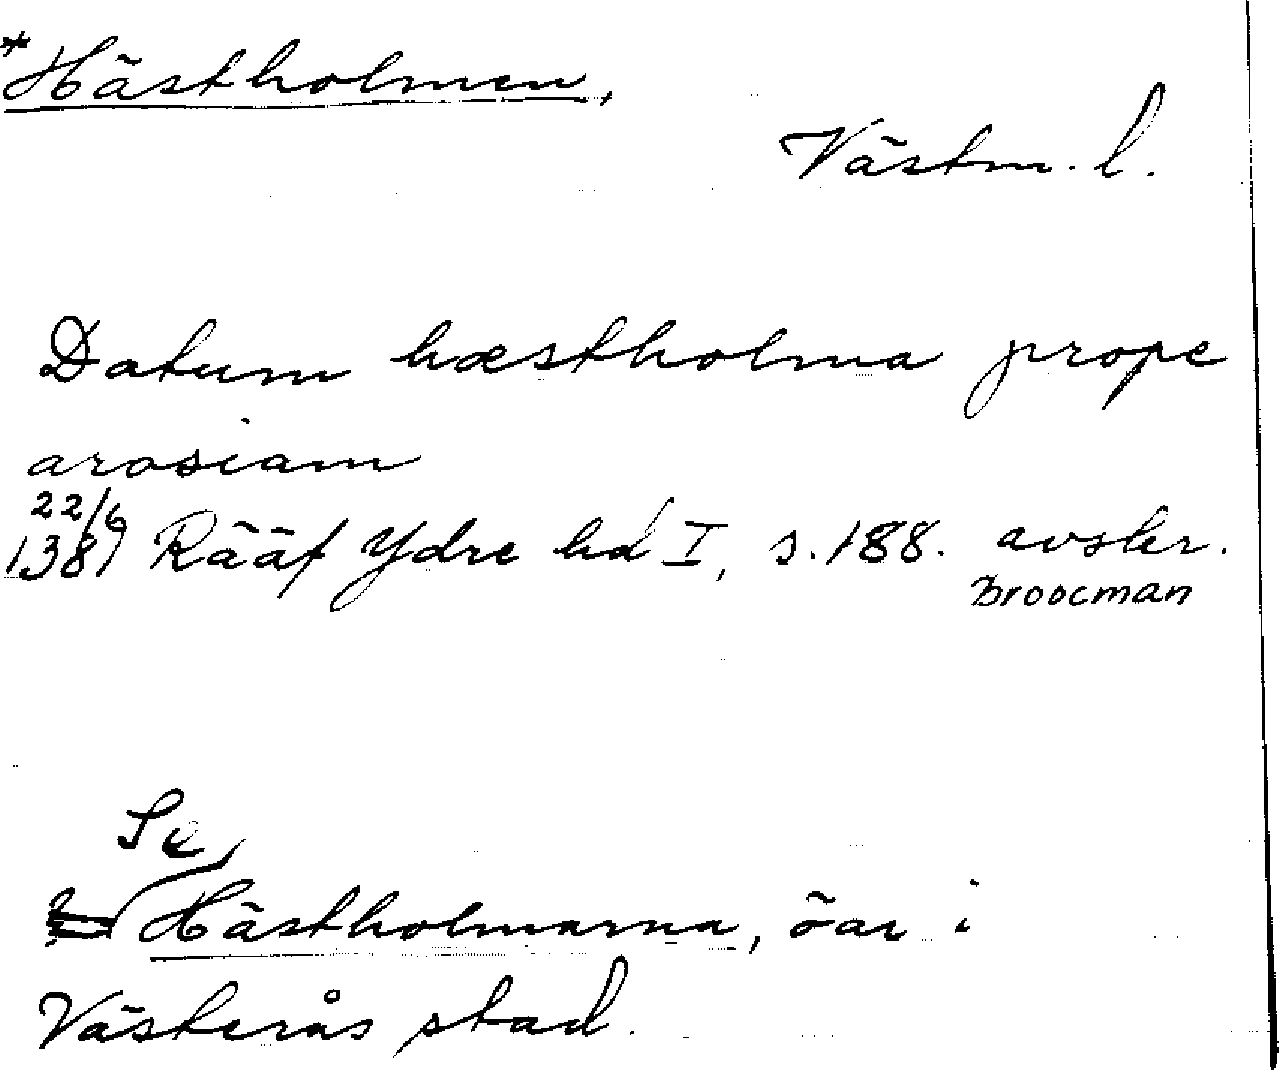 *Hästholmen,
Västm. l.
Datum hæstholma prope
arosiam
22/6
1387 Rääf Ydre hd I, s. 188. avskr.
Broocman
Se
Hästholmarna, öar i
Västerås stad.